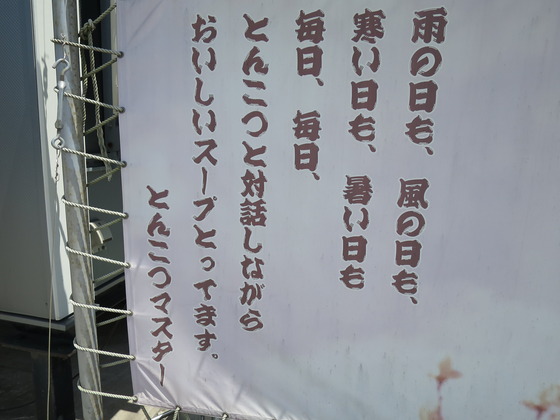 雨の日も、風の日も、
寒い日も、暑い日も
毎日、毎日、
とんこつと対話しながら
おいしいスープとってます。
とんこつマスター